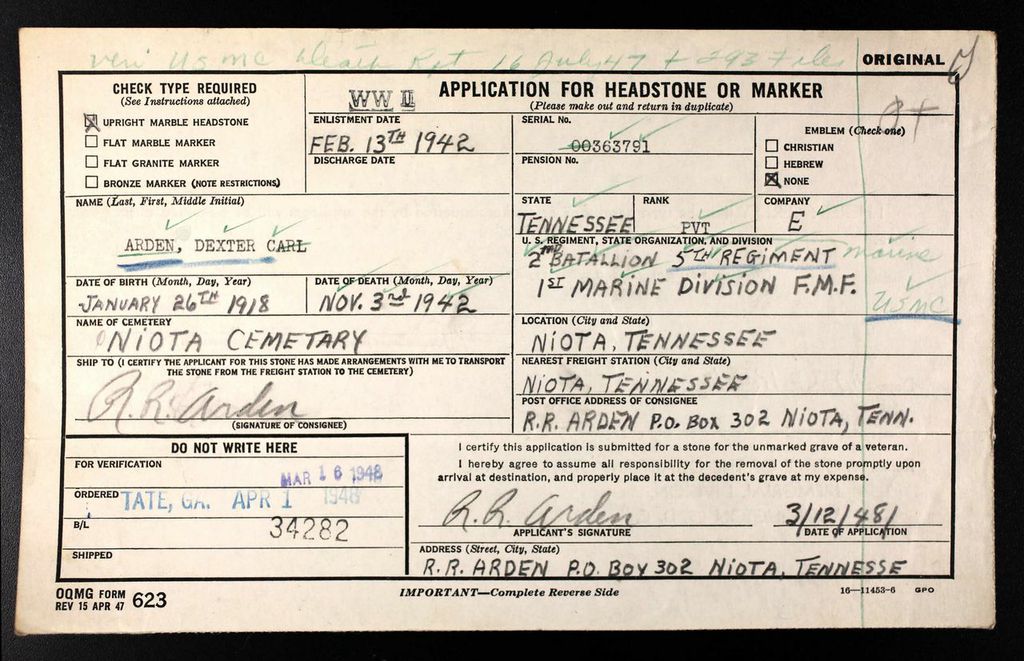 veri USMC Death Rpt 16 July 47 + 293 Files
ORIGINAL
CHECK TYPE REQUIRED
(See Instructions attached)
☒ UPRIGHT MARBLE HEADSTONE
☐ FLAT MARBLE MARKER
☐ FLAT GRANITE MARKER
☐ BRONZE MARKER (NOTE RESTRICTIONS)
WW II
APPLICATION FOR HEADSTONE OR MARKER
(Please make out and return in duplicate)
ENLISTMENT DATE
FEB. 13TH 1942
DISCHARGE DATE
SERIAL No.
00363791
PENSION No.
EMBLEM (Check one)
☐ CHRISTIAN
☐ HEBREW
☒ NONE
NAME (Last, First, Middle Initial)
ARDEN, DEXTER CARL
STATE
TENNESSEE
RANK
PVT
COMPANY
E
U. S. REGIMENT, STATE ORGANIZATION, AND DIVISION
2ND BATALLION 5TH REGIMENT Marine
1ST MARINE DIVISION F.M.F.
USMC
DATE OF BIRTH (Month, Day, Year)
JANUARY 26TH 1918
DATE OF DEATH (Month, Day, Year)
NOV. 3rd 1942
NAME OF CEMETERY
NIOTA CEMETARY
LOCATION (City and State)
NIOTA, TENNESSEE
SHIP TO (I CERTIFY THE APPLICANT FOR THIS STONE HAS MADE ARRANGEMENTS WITH ME TO TRANSPORT
THE STONE FROM THE FREIGHT STATION TO THE CEMETERY)
R.R. Arden
(SIGNATURE OF CONSIGNEE)
NEAREST FREIGHT STATION (City and State)
NIOTA, TENNESSEE
POST OFFICE ADDRESS OF CONSIGNEE
R.R. ARDEN P.O. BOX 302 NIOTA, TENN.
DO NOT WRITE HERE
FOR VERIFICATION
MAR 16 1948
ORDERED
TATE, GA. APR 1 1948
B/L
34282
SHIPPED
I certify this application is submitted for a stone for the unmarked grave of a veteran.
I hereby agree to assume all responsibility for the removal of the stone promptly upon
arrival at destination, and properly place it at the decedent's grave at my expense.
R.R. Arden
APPLICANT'S SIGNATURE
3/12/48
DATE OF APPLICATION
ADDRESS (Street, City, State)
R.R. ARDEN P.O. BOX 302 NIOTA, TENNESSE
OQMG FORM
REV 15 APR 47 623
IMPORTANT—Complete Reverse Side
16—11453-6 GPO